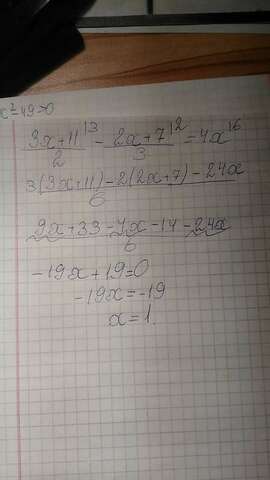 x²-49=0
3x+11|3/2 - 2x+7|2/3 = 4x|6
3(3x+11)-2(2x+7)-24x/6
9x+33-4x-14-24x/6
-19x+19=0
-19x=-19
x=1.